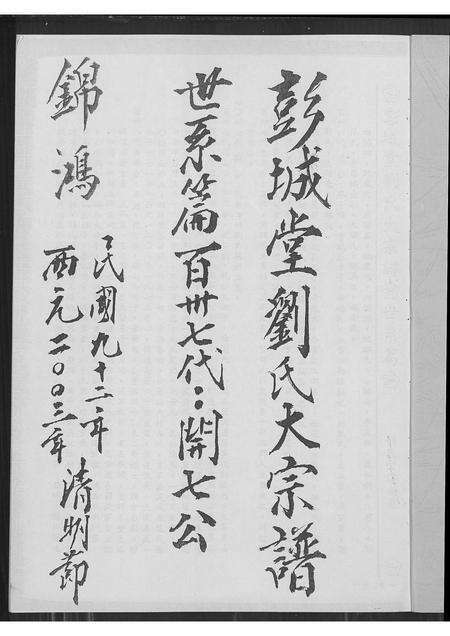 彭城堂劉氏大宗譜
世系篇百卅七代:開七公
民國九十二年
西元二00三年 清明節
錦鴻